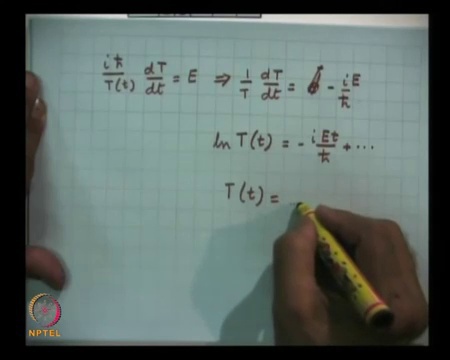 iħ/T(t) dT/dt = E ⇒ 1/T dT/dt = - iE/ħ
ln T(t) = - iEt/ħ + ...
T(t) =
NPTEL